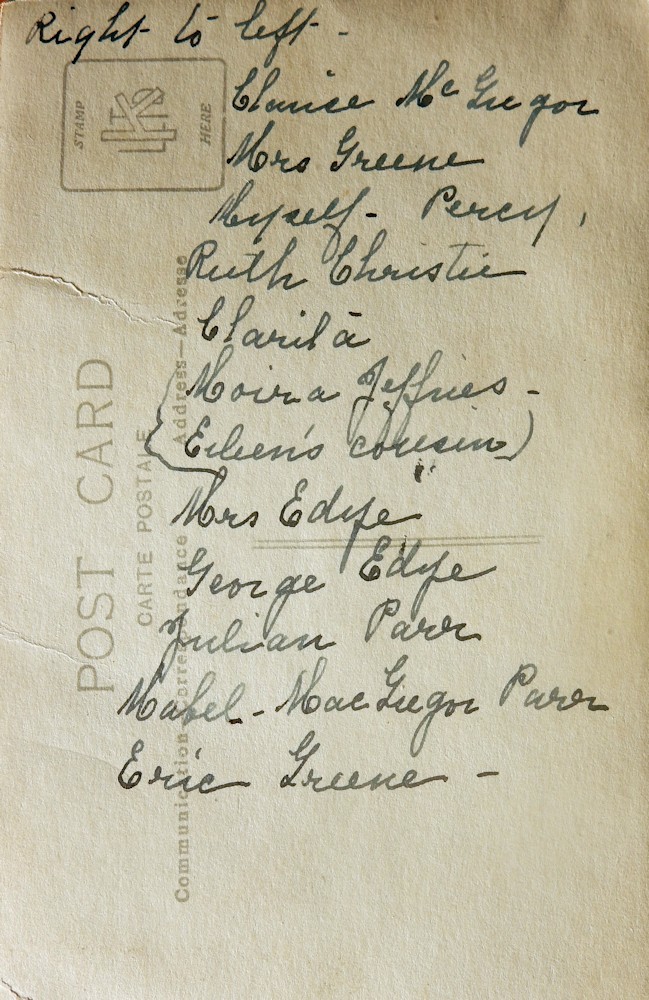 Right to left -
STAMP HERE
Clarice McGregor
Mrs Greene
Myself - Percy,
Ruth Christie
Clarita
Moira Jeffries -
(Eileen's cousin)
Mrs Edye
George Edye
Julian Parr
Mabel - MacGregor Parr
Eric Greene -
POST CARD
CARTE POSTALE
Communication Correspondance Address—Adresse